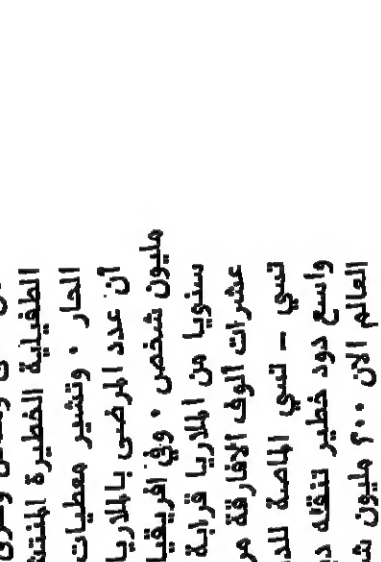 الطفيلية الخطيرة المنتش
الحار ٠ وتشير معطيات
أن عدد المرضى بالملاريا
مليون شخص ٠ وفي افريقيا
سنويا من الملاريا قرابة
عشرات ألوف الافارقة مر
تسي – تسي الماصة للد
واسع دود خطير تنقله د
العالم الان ٢٠٠ مليون ش